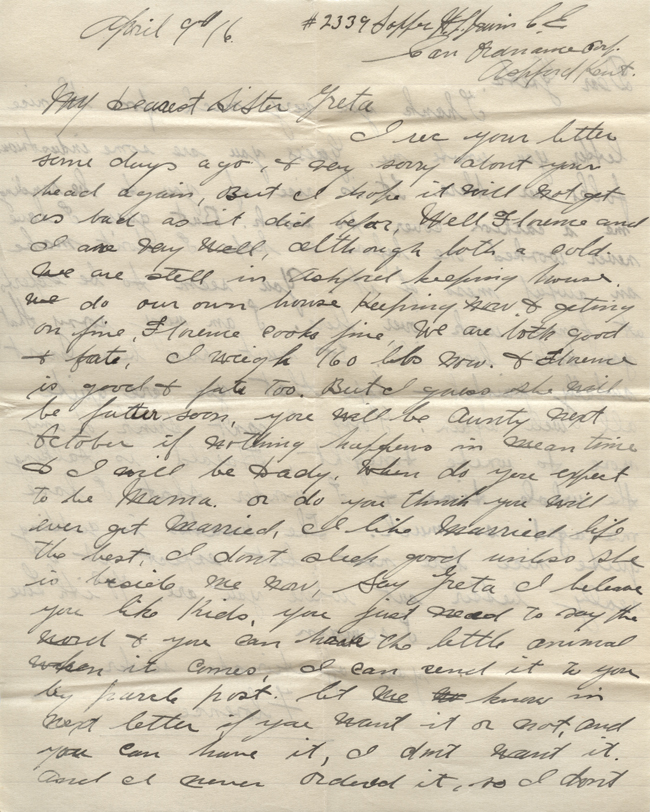 April 9th/16. #2339 Sapper C.E
Can Ordnance
Ashford Kent.
My Dearest Sister Greta
I rec your letter
some days ago, & very sorry about your
head again, But I hope it will not get
as bad as it did befor, Well Florence and
I are very well, although both a cold.
We are still in Ashford keeping house.
we do our own house keeping now & geting
on fine, Florence cooks fine. We are both good
& fate, I weigh 160 lbs now. & Florence
is good & fate too. But I guess she will
be fatter soon, you will be Aunty next
October if nothing happens in mean time
& I will be Dady, When do you expect
to be Mama. or do you think you will
ever get married, I like married life
the best, I dont sleep good unless she
is beside me now, Say Greta I beleave
you like Kids, you just need to say the
word & you can have the little animal
when it comes, I can send it to you
by parcle post. let me know in
next letter if you want it or not, and
you can have it, I dont want it.
and I never ordered it, so I dont